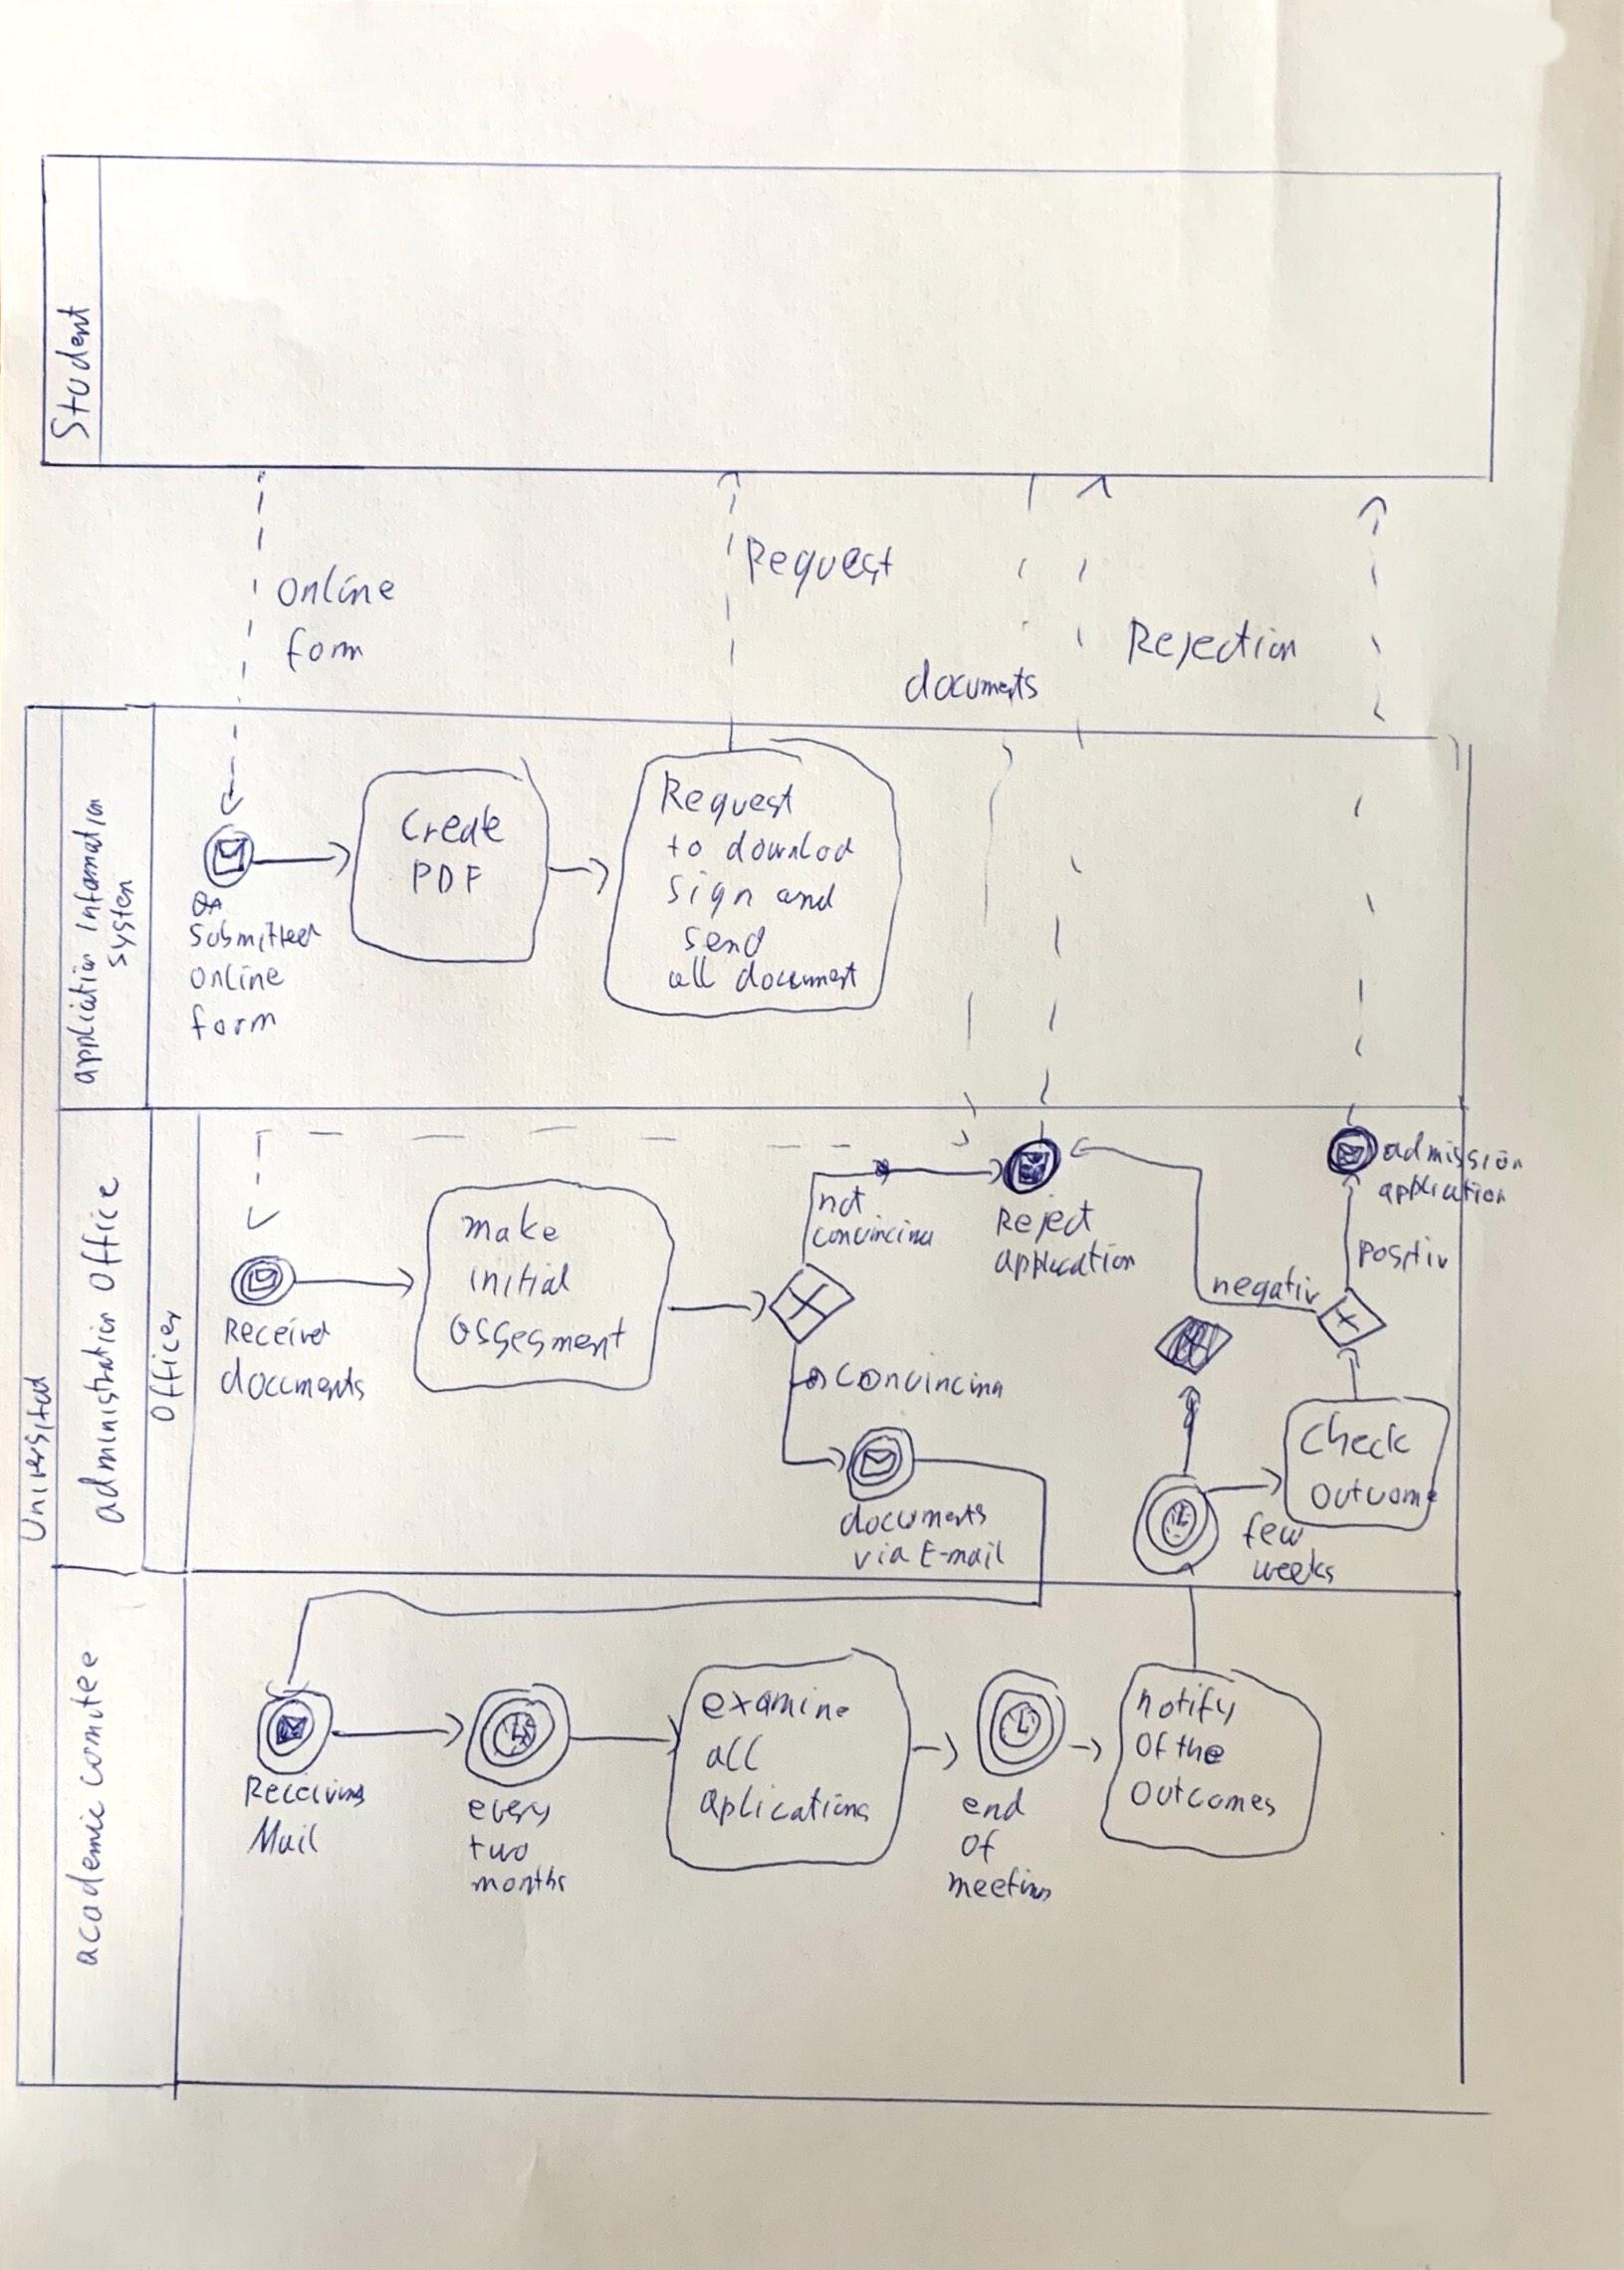 Student
Online
form
Request
documents
Rejection
Universitad
application information
system
Submitted
online
form
Create
PDF
Request
to downlod
sign and
send
all document
administration Office
Officer
Received
documents
make
initial
assesment
not
convincing
Convincing
Reject
application
documents
via E-mail
negativ
positiv
admission
application
few
weeks
Check
outcome
academic comitee
Receiving
Mail
every
two
months
examine
all
aplications
end
of
meeting
notify
Of the
Outcomes